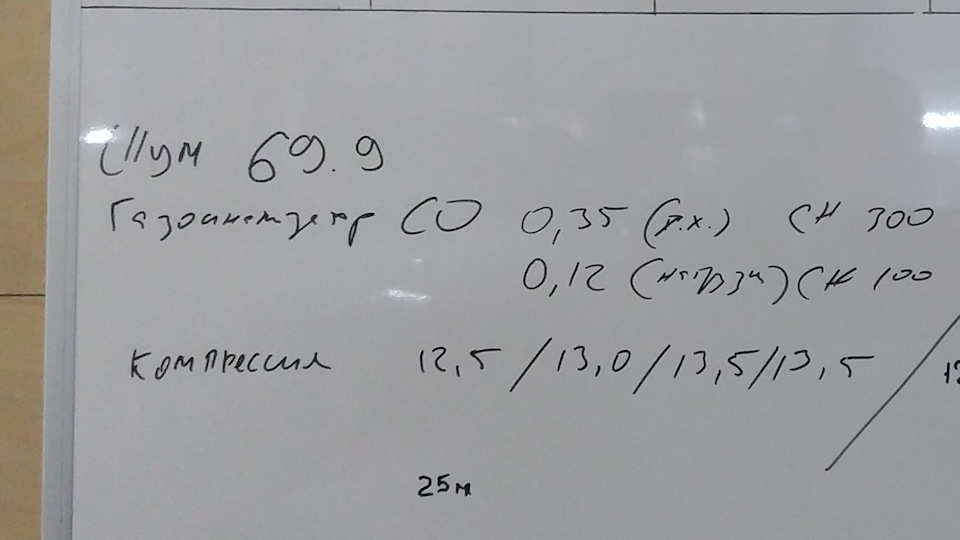 Шум 69.9
Газоанализатор CO 0,35 (х.х.) CH 300
0,12 (нагрузки) CH 100
Компрессия 12,5 / 13,0 / 13,5 / 13,5 / 12
25м